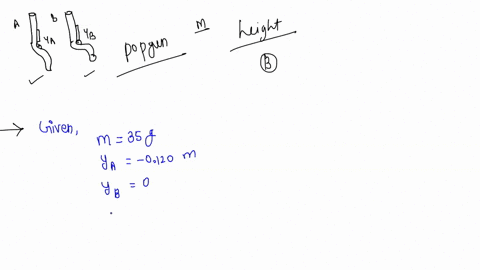 A B
yA yB
popgun m height
B
→ Given,
m = 35 g
yA = -0.120 m
yB = 0